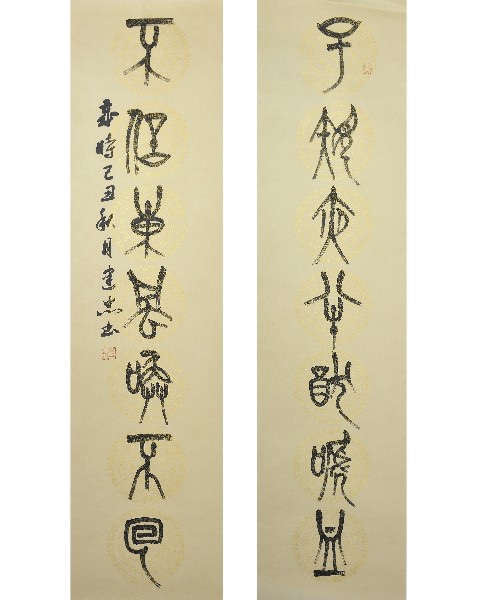 子規夜半猶啼血
不信東風喚不回
時己丑秋月建忠书